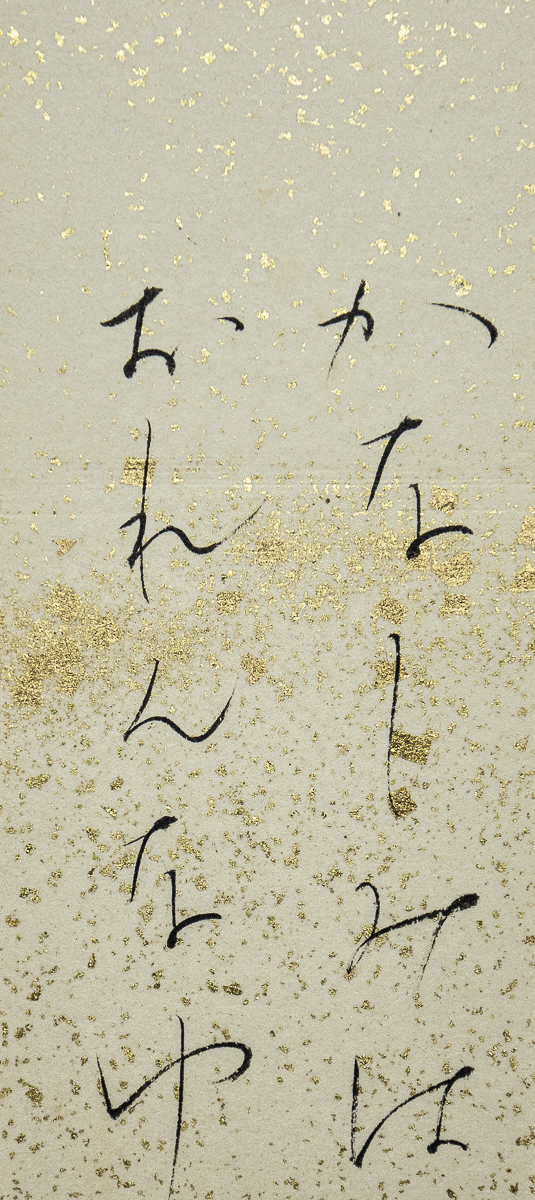 かなしみは
おれんなや